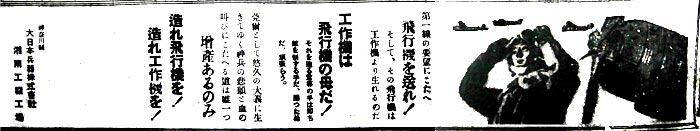 第一線の要望にこたへ
飛行機を送れ!
そして、その飛行機は
工作機より生れるのだ
工作機は
飛行機の母だ!
それを護る産業の手は即ち
敵を制する手だ、勝つため
だ、頑張らう。
莞爾として悠久の大義に生
きてゆく神兵の悲願と血の
叫びにこたへる道は唯一つ
増産あるのみ
造れ飛行機を!
造れ工作機を!
神奈川県
大日本兵器株式会社
湘南工機工場